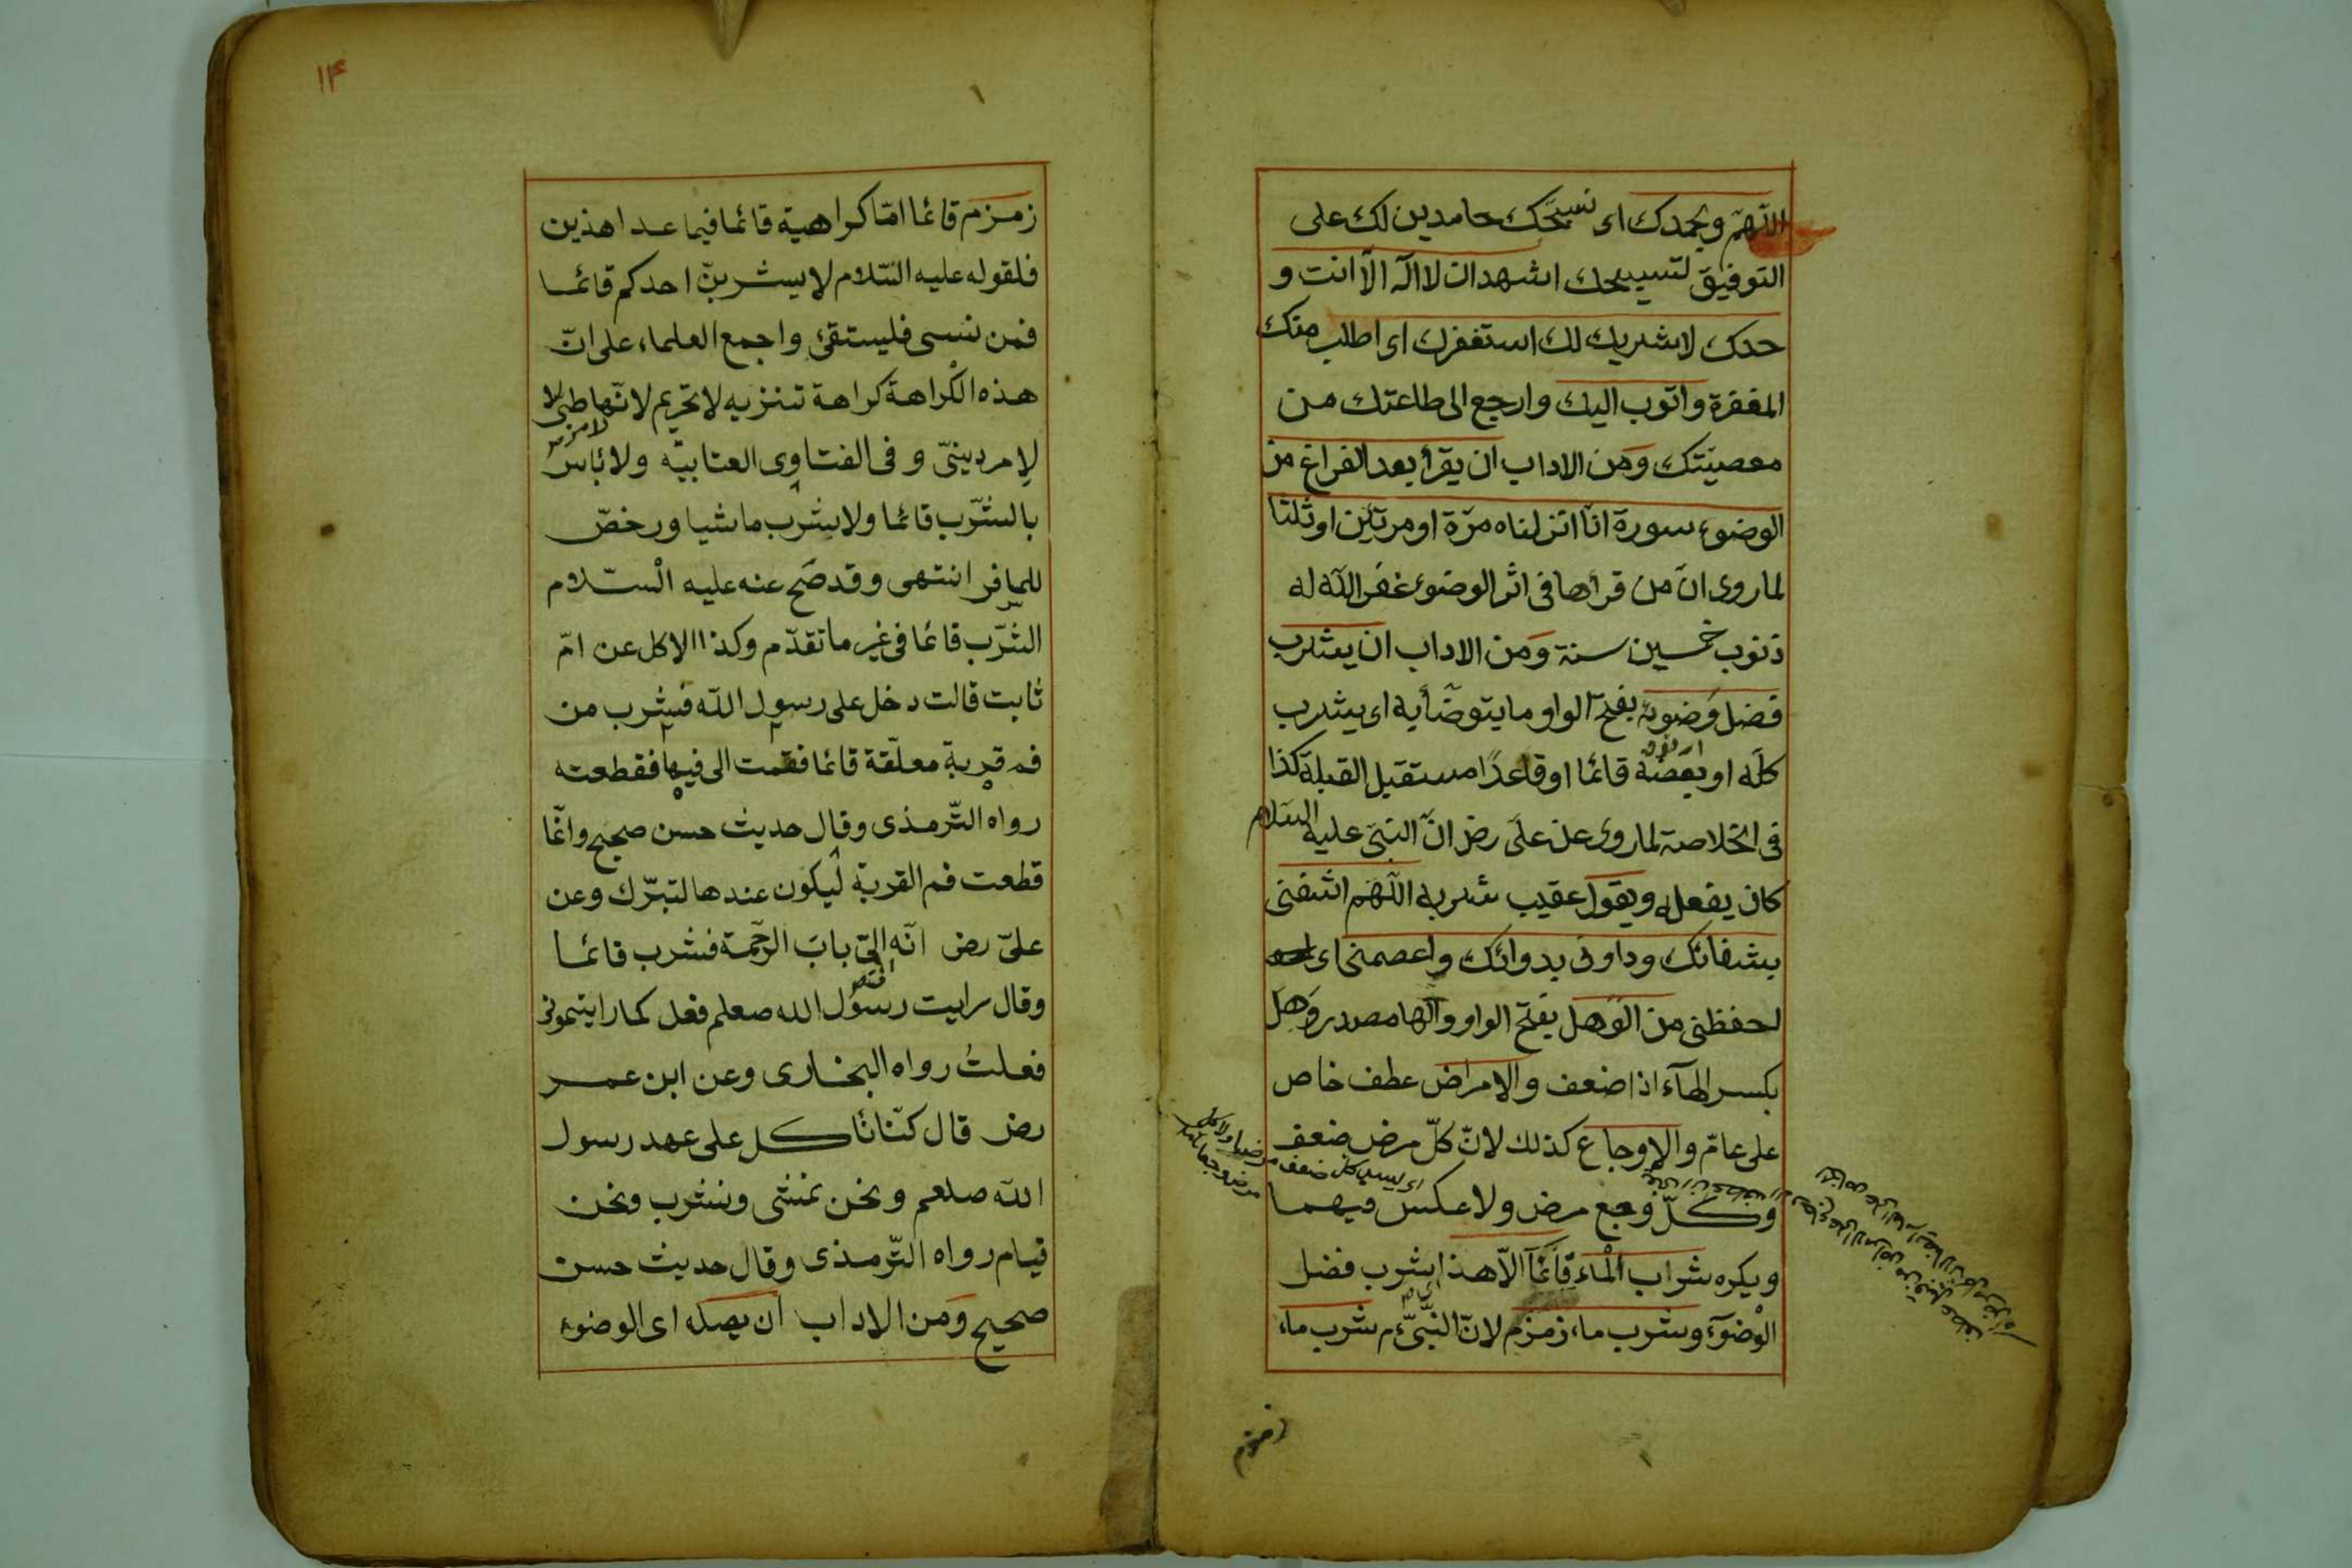 اللهم وبحمدك اى نسبحك حامدين لك على
التوفيق لتسبيحك اشهد ان لا اله الا انت و
حدك لا شريك لك استغفرك اى اطلب منك
المغفرة واتوب اليك وارجع الى طاعتك من
معصيتك ومن الاداب ان يقرأ بعد الفراغ من
الوضوء سورة انا انزلناه مرة او مرتين او ثلثا
لما روى ان من قرأها فى اثر الوضوء غفر الله له
ذنوب خمسين سنة ومن الاداب ان يشرب
فضل وضوئه بفتح الواو ما يتوضأ به اى يشرب
كله او بعضه قائما او قاعدا مستقبل القبلة كذا
فى الخلاصة لما روى عن على رض ان النبى عليه السلام
كان يفعله ويقول عقيب شربه اللهم اشفنى
بشفائك وداونى بدوائك واعصمنى اى
احفظنى من الوهل بفتح الواو والها مصدر وهل
بكسر الهآء اذا ضعف والامراض عطف خاص
على عام والاوجاع كذلك لان كل مرض ضعف
وكل وجع مرض ولا عكس فيهما
ويكره شراب الماء قائما الا هذا اى شرب فضل
الوضوء وشرب ماء زمزم لان النبى م شرب ماء
زمزم
١٤
زمزم قائما اما كراهية قائما فيما عدا هذين
فلقوله عليه السلام لا يشربن احدكم قائما
فمن نسى فليستقئ واجمع العلماء على ان
هذه الكراهة كراهة تنزيه لا تحريم لانها طبى لا
لامر دينى وفى الفتاوى العتابيه ولا بأس
بالشرب قائما ولا يشرب ماشيا ورخص
للمسافر انتهى وقد صح عنه عليه السلام
الشرب قائما فى غير ما تقدم وكذا الاكل عن ام
ثابت قالت دخل على رسول الله فشرب من
فم قربة معلقة قائما فقمت الى فيها فقطعته
رواه الترمذى وقال حديث حسن صحيح وانما
قطعت فم القربة ليكون عندها لتبرك وعن
على رض انه اتى باب الرحمة فشرب قائما
وقال رايت رسول الله صلعم فعل كما رايتمونى
فعلت رواه البخارى وعن ابن عمر
رض قال كنا نأكل على عهد رسول
الله صلعم ونحن نمشى ونشرب ونحن
قيام رواه الترمذى وقال حديث حسن
صحيح ومن الاداب ان يصله اى الوضوء